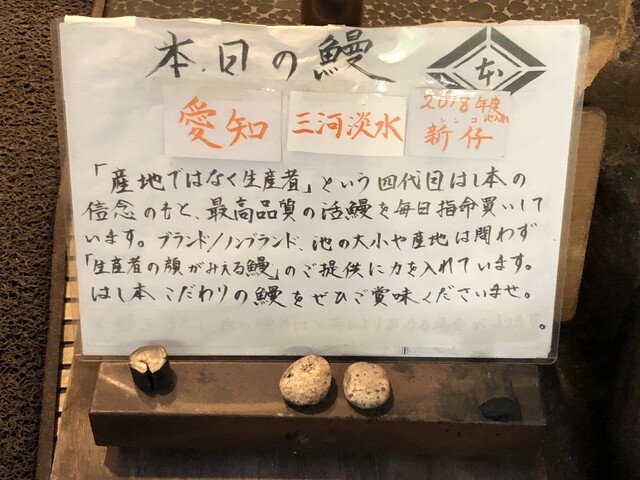 本日の鰻
本
愛知
三河淡水
2018年度
池入れ
シンコ
新仔
「産地ではなく生産者」という四代目はし本の
信念のもと、最高品質の活鰻を毎日指命買いして
います。ブランド/ノンブランド、池の大小や産地は問わず
「生産者の顔がみえる鰻」のご提供に力を入れています。
はし本こだわりの鰻をぜひご賞味くださいませ。